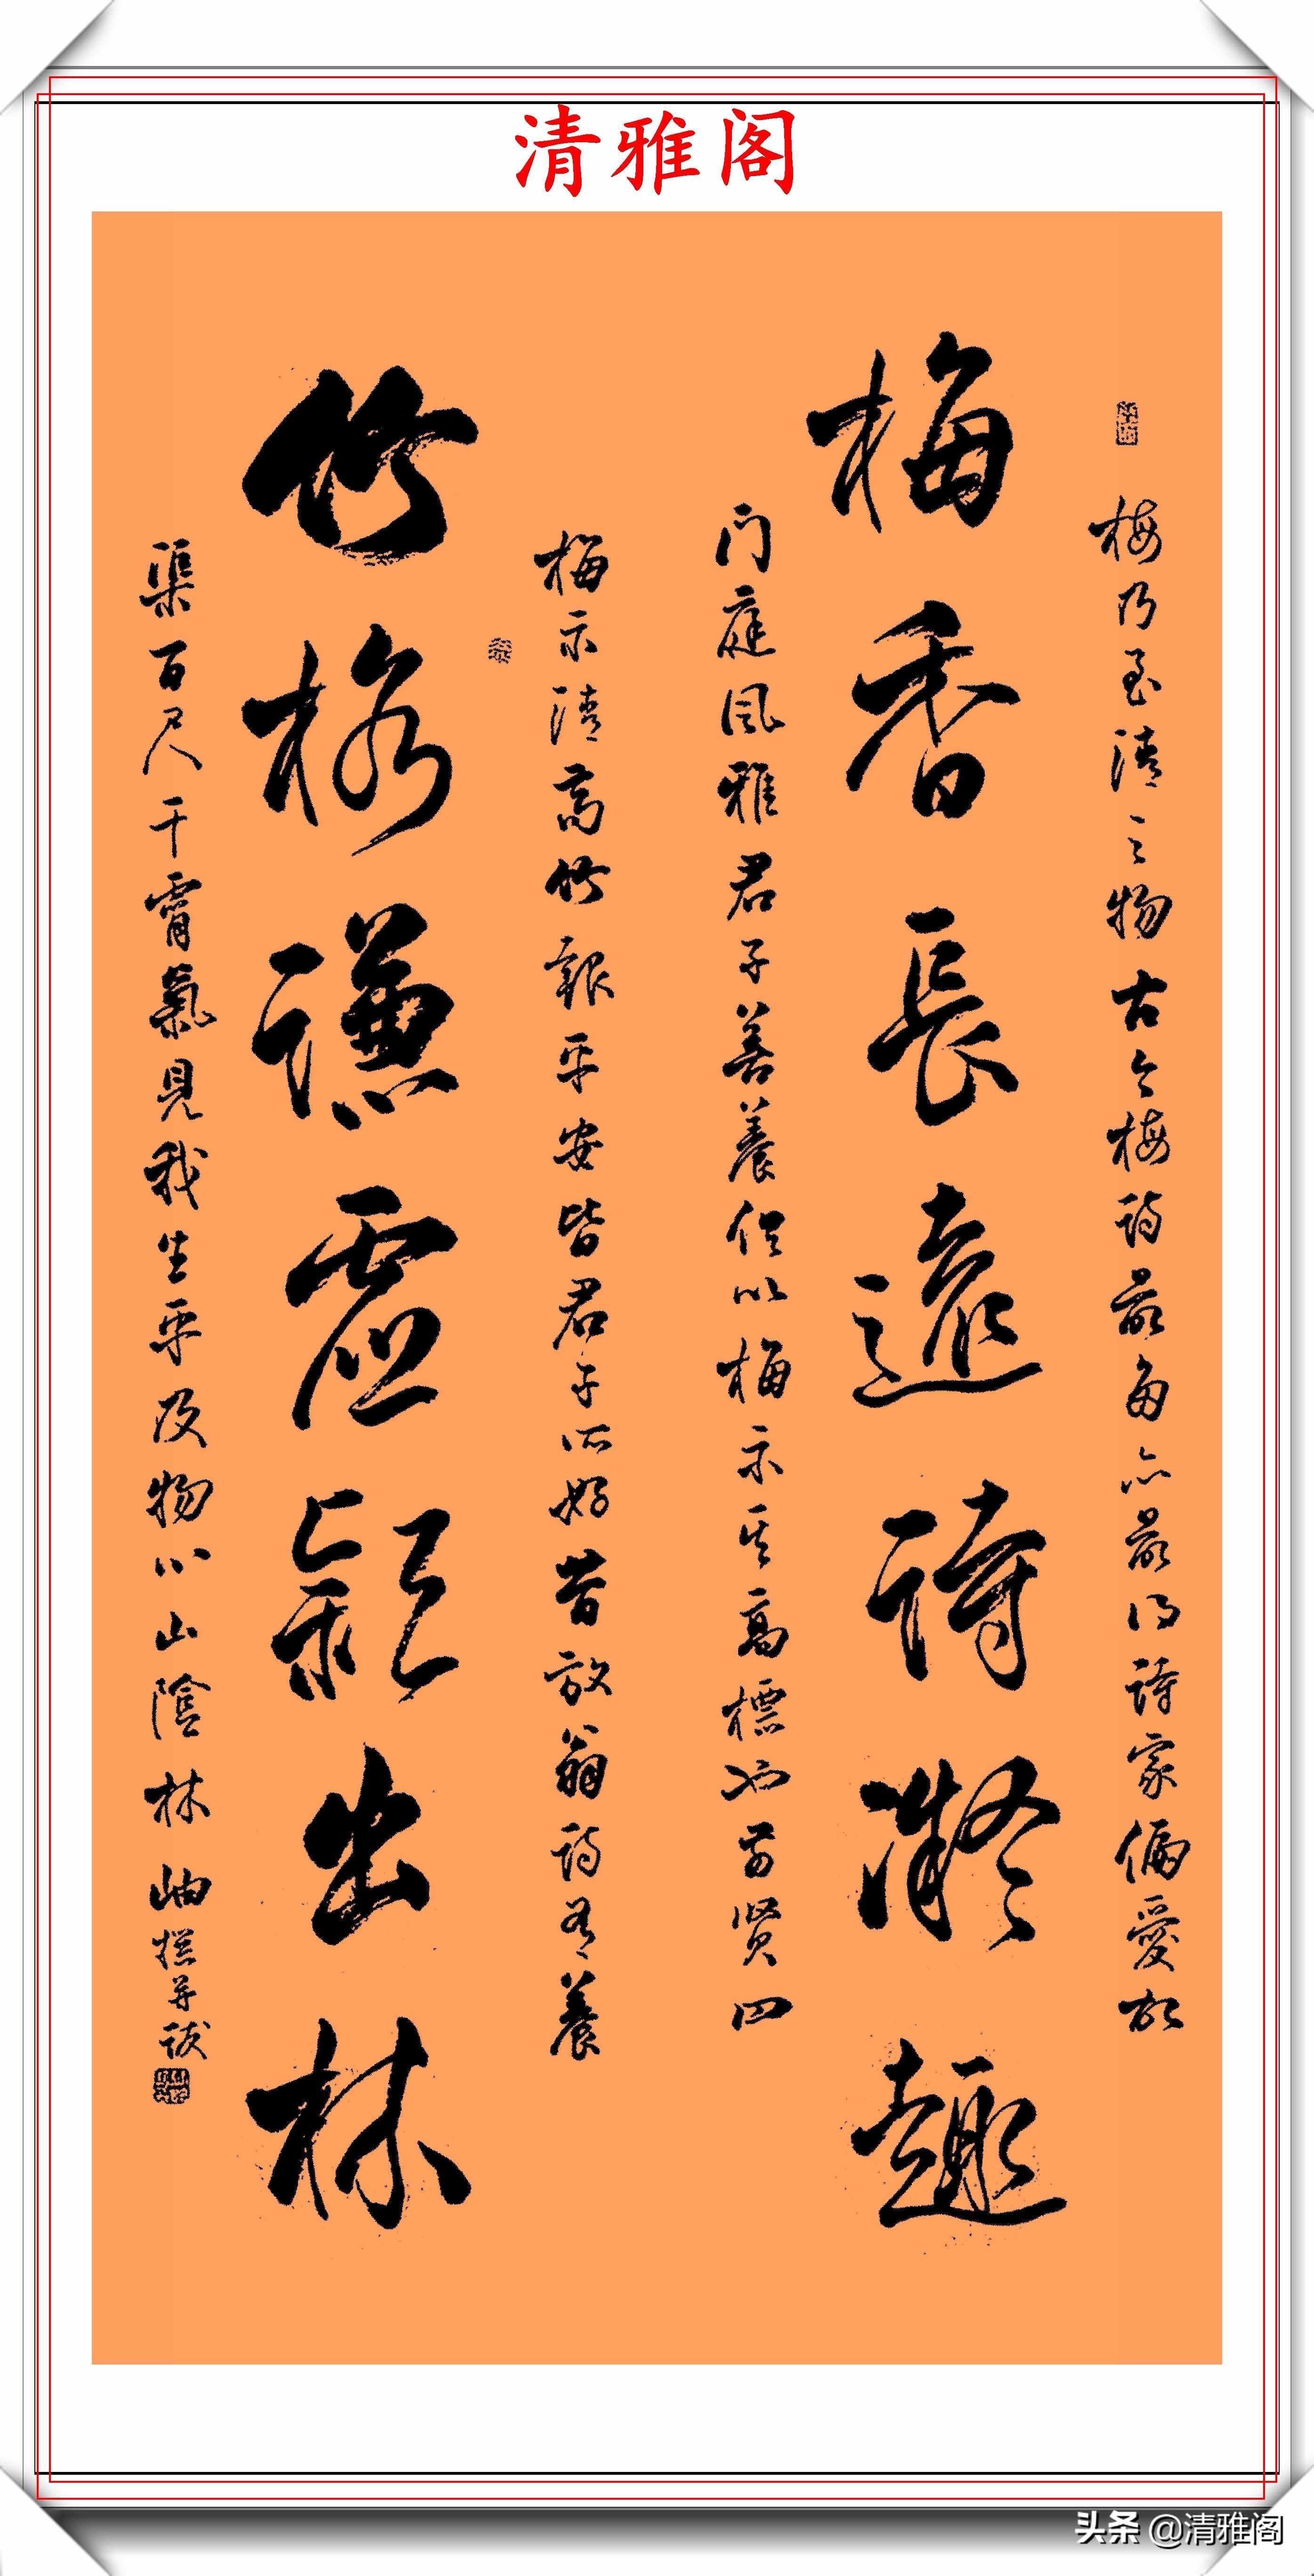 清雅阁
梅乃至清之物古今梅詩最多亦最得詩家偏愛故
梅香長遠詩凝趣
门庭風雅君子善養以梅示其高標贤
梅示清高竹報平安皆君子所好昔放翁詩有養
竹格謙虛穎出林
渠百尺干霄氣見我生平及物心山陰林岫撰并跋
头条 @清雅阁